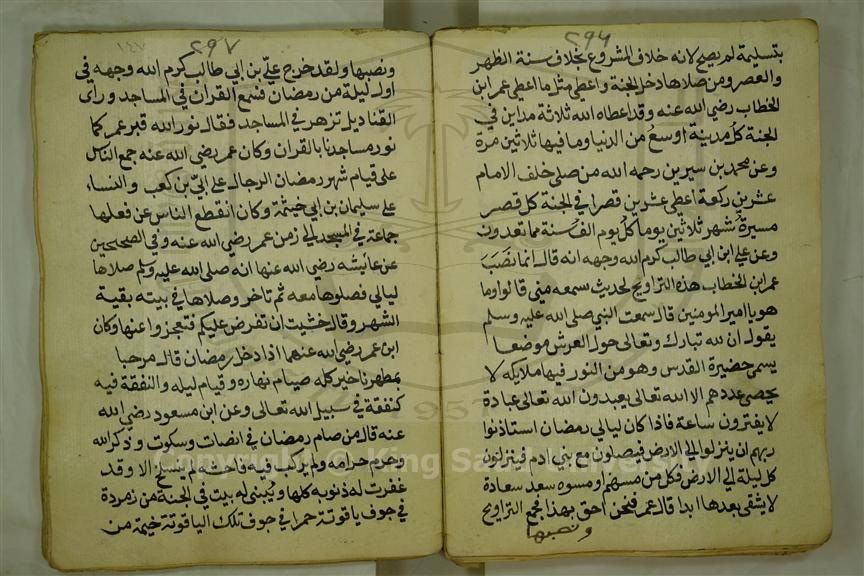 ٢٩٦
بتسليمة لم يصح لانه خلاف المشروع بخلاف سنة الظهر
والعصر ومن صلاها دخل الجنة واعطي مثل ما اعطي عمر ابن
الخطاب رضي الله عنه وقد اعطاه الله ثلاثة مداين في
الجنة كل مدينة اوسع من الدنيا وما فيها ثلاثين مرة
وعن محمد بن سيرين رحمه الله من صلى خلف الامام
عشرين ركعة اعطي عشرين قصرا في الجنة كل قصر
مسيرة شهر ثلاثين يوما كل يوم الف سنة مما تعدون
وعن علي ابن ابي طالب كرم الله وجهه انه قال انما نصب
عمر ابن الخطاب هذه التراويح لحديث سمعه مني قالوا وما
هو يا امير المومنين قال سمعت النبي صلى الله عليه وسلم
يقول ان لله تبارك وتعالى حول العرش موضعا
يسمى حضيرة القدس وهو من النور فيها ملايكه لا
يحصي عددهم الا الله تعالى يعبدون الله تعالى عبادة
لا يفترون ساعة فاذا كان ليالي رمضان استاذنوا
ربهم ان ينزلوا الى الارض فيصلون مع بني ادم فينزلون
كل ليلة الى الارض فكل من مسهم او مسوه سعد سعادة
لا يشقى بعدها ابدا قال عمر فنحن احق بهذا فجمع التراويح
ونصبها
٢٩٧
ونصبها ولقد خرج علي بن ابي طالب كرم الله وجهه في
اول ليلة من رمضان فسمع القران في المساجد وراى
القناديل تزهر في المساجد فقال نور الله قبر عمر كما
نور مساجدنا بالقران وكان عمر رضي الله عنه جمع الناس
على قيام شهر رمضان الرجال على ابي بن كعب والنساء
على سليمان بن ابي خيثمة وكان انقطع الناس عن فعلها
جماعة في المسجد الى زمن عمر رضي الله عنه وفي الصحيحين
عن عائشه رضي الله عنها انه صلى الله عليه وسلم صلاها
ليالي فصلوها معه ثم تاخر وصلاها في بيته بقية
الشهر وقال خشيت ان تفرض عليكم فتعجزوا عنها وكان
ابن عمر رضي الله عنهما اذا دخل رمضان قال مرحبا
بمطهرنا خير كله صيام نهاره وقيام ليله والنفقة فيه
كنفقة في سبيل الله تعالى وعن ابن مسعود رضي الله
عنه قال من صام رمضان في انصات وسكوت وذكر الله
وحرم حرامه ولم يركب فيه فاحشه لم ينسلخ الا وقد
غفرت له ذنوبه كلها ويبنى له بيت في الجنة من زمردة
في جوف ياقوتة حمرا في جوف تلك الياقوتة خيمة من
Copyright © King Saud University
1957